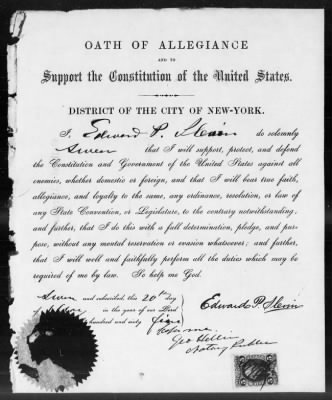 OATH OF ALLEGIANCE
AND TO
Support the Constitution of the United States.
DISTRICT OF THE CITY OF NEW-YORK.
I, Edward P. Slevin do solemnly
Swear that I will support, protect, and defend
the Constitution and Government of the United States against all
enemies, whether domestic or foreign, and that I will bear true faith,
allegiance, and loyalty to the same, any ordinance, resolution, or law of
any State Convention, or Legislature, to the contrary notwithstanding;
and further, that I do this with a full determination, pledge, and pur-
pose, without any mental reservation or evasion whatsoever; and further,
that I will well and faithfully perform all the duties which may be
required of me by law. So help me God.
Sworn and subscribed, this 20th day
in the year of our Lord
hundred and sixty five
Edward P. Slevin
before me.
Geo
Notary Public